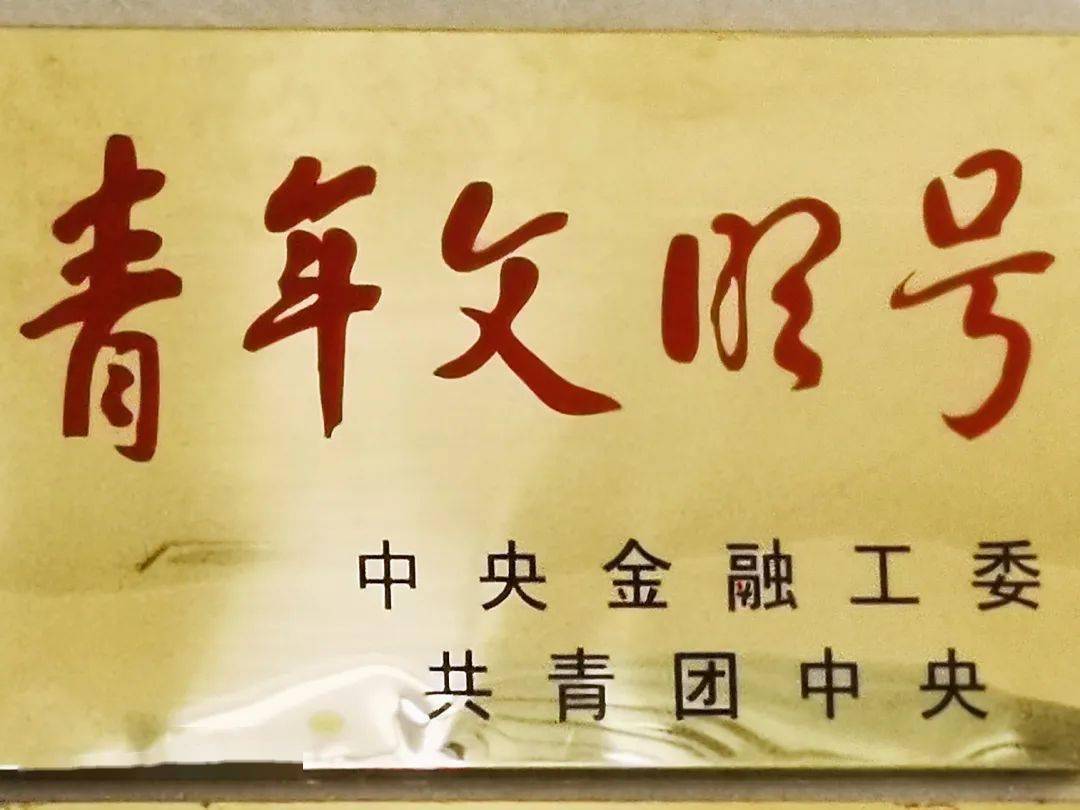 青年文明号
中央金融工委
共青团中央